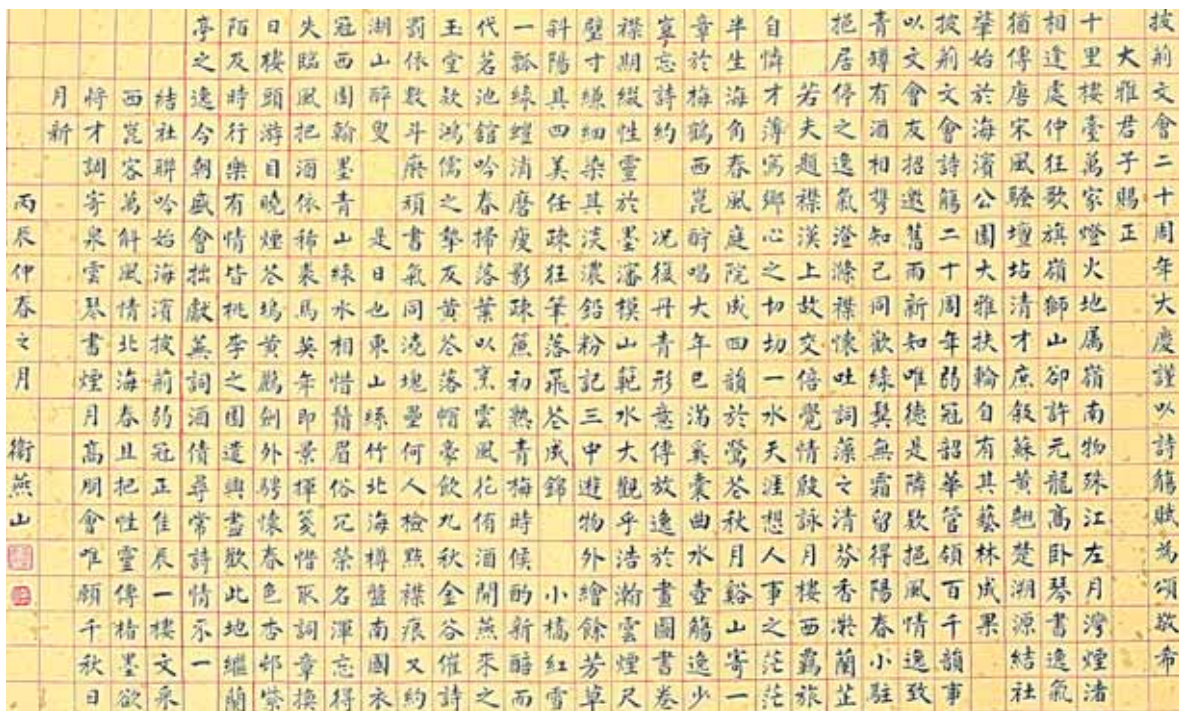 披荊文會二十周年大慶謹以詩觴賦為頌敬希
大雅君子賜正
十里樓臺萬家燈火地属嶺南物殊江左月灣煙渚
相逢處仲狂歌旗嶺獅山卻許元龍高臥琴書逸氣
猶傳唐宋風騷壇坫清才庶叙蘇黃翹楚溯源結社
肇始於海濱公園大雅扶輪自有其藝林成果
披荊文會詩觴二十周年弱冠韶華管領百千韻事
以文會友招邀舊雨新知唯德是隣欵挹風情逸致
青罇有酒相攜知己同歡緣鬂無霜留得陽春小駐
挹居停之逸氣澄滌襟懷吐詞藻之清芬香漱蘭芷
若夫題襟漢上故交倍覺情殷詠月樓西靄旅
自憐才薄寫鄉心之切切一水天涯想人事之茫茫
半生海角春風庭院成四韻於鶯花秋月谿山寄一
章於梅鶴西崑酹唱大年已滿奚囊曲水壺觴逸少
寧忘詩約況復丹青形意傳放逸於畫圖書卷
襟期綴性靈於墨瀋模山範水大觀乎浩瀚雲煙尺
壁寸縑細染其淡濃鉛粉記三中遊物外繪餘芳草
斜陽具四美任疎狂筆落飛花成錦小橋紅雪
一瓢綠螘消磨瘦影疎簾初熟青梅時候酌新醅而
代茗池館吟春掃落葉以烹雲風花侑酒開燕來之
玉堂欵鴻儒之摯友黃花落帽豪飲九秋金谷催詩
罰依數斗廢頑書氣同澆塊壘何人檢點襟痕又約
湖山醉叟是日也東山絲竹北海樽盤南國衣
冠西園翰墨青山綠水相惜鬍眉俗冗榮名渾忘得
失臨風把酒依稀裘馬英年即景揮箋惜取詞章換
日樓頭游目曉煙花塢黃鸝劍外騁懷春色杏邨紫
陌及時行樂有情皆桃李之園遣興盡歡此地繼蘭
亭之逸今朝盛會拙獻蕪詞酒債尋常詩情不一
結社聯吟始海濱披荊弱冠正佳辰一樓文采
西崑客萬斛風情北海春且把性靈傳楷墨欲
將才調寄泉雲琴書煙月高朋會唯願千秋日
月新
丙辰仲春之月衛燕山